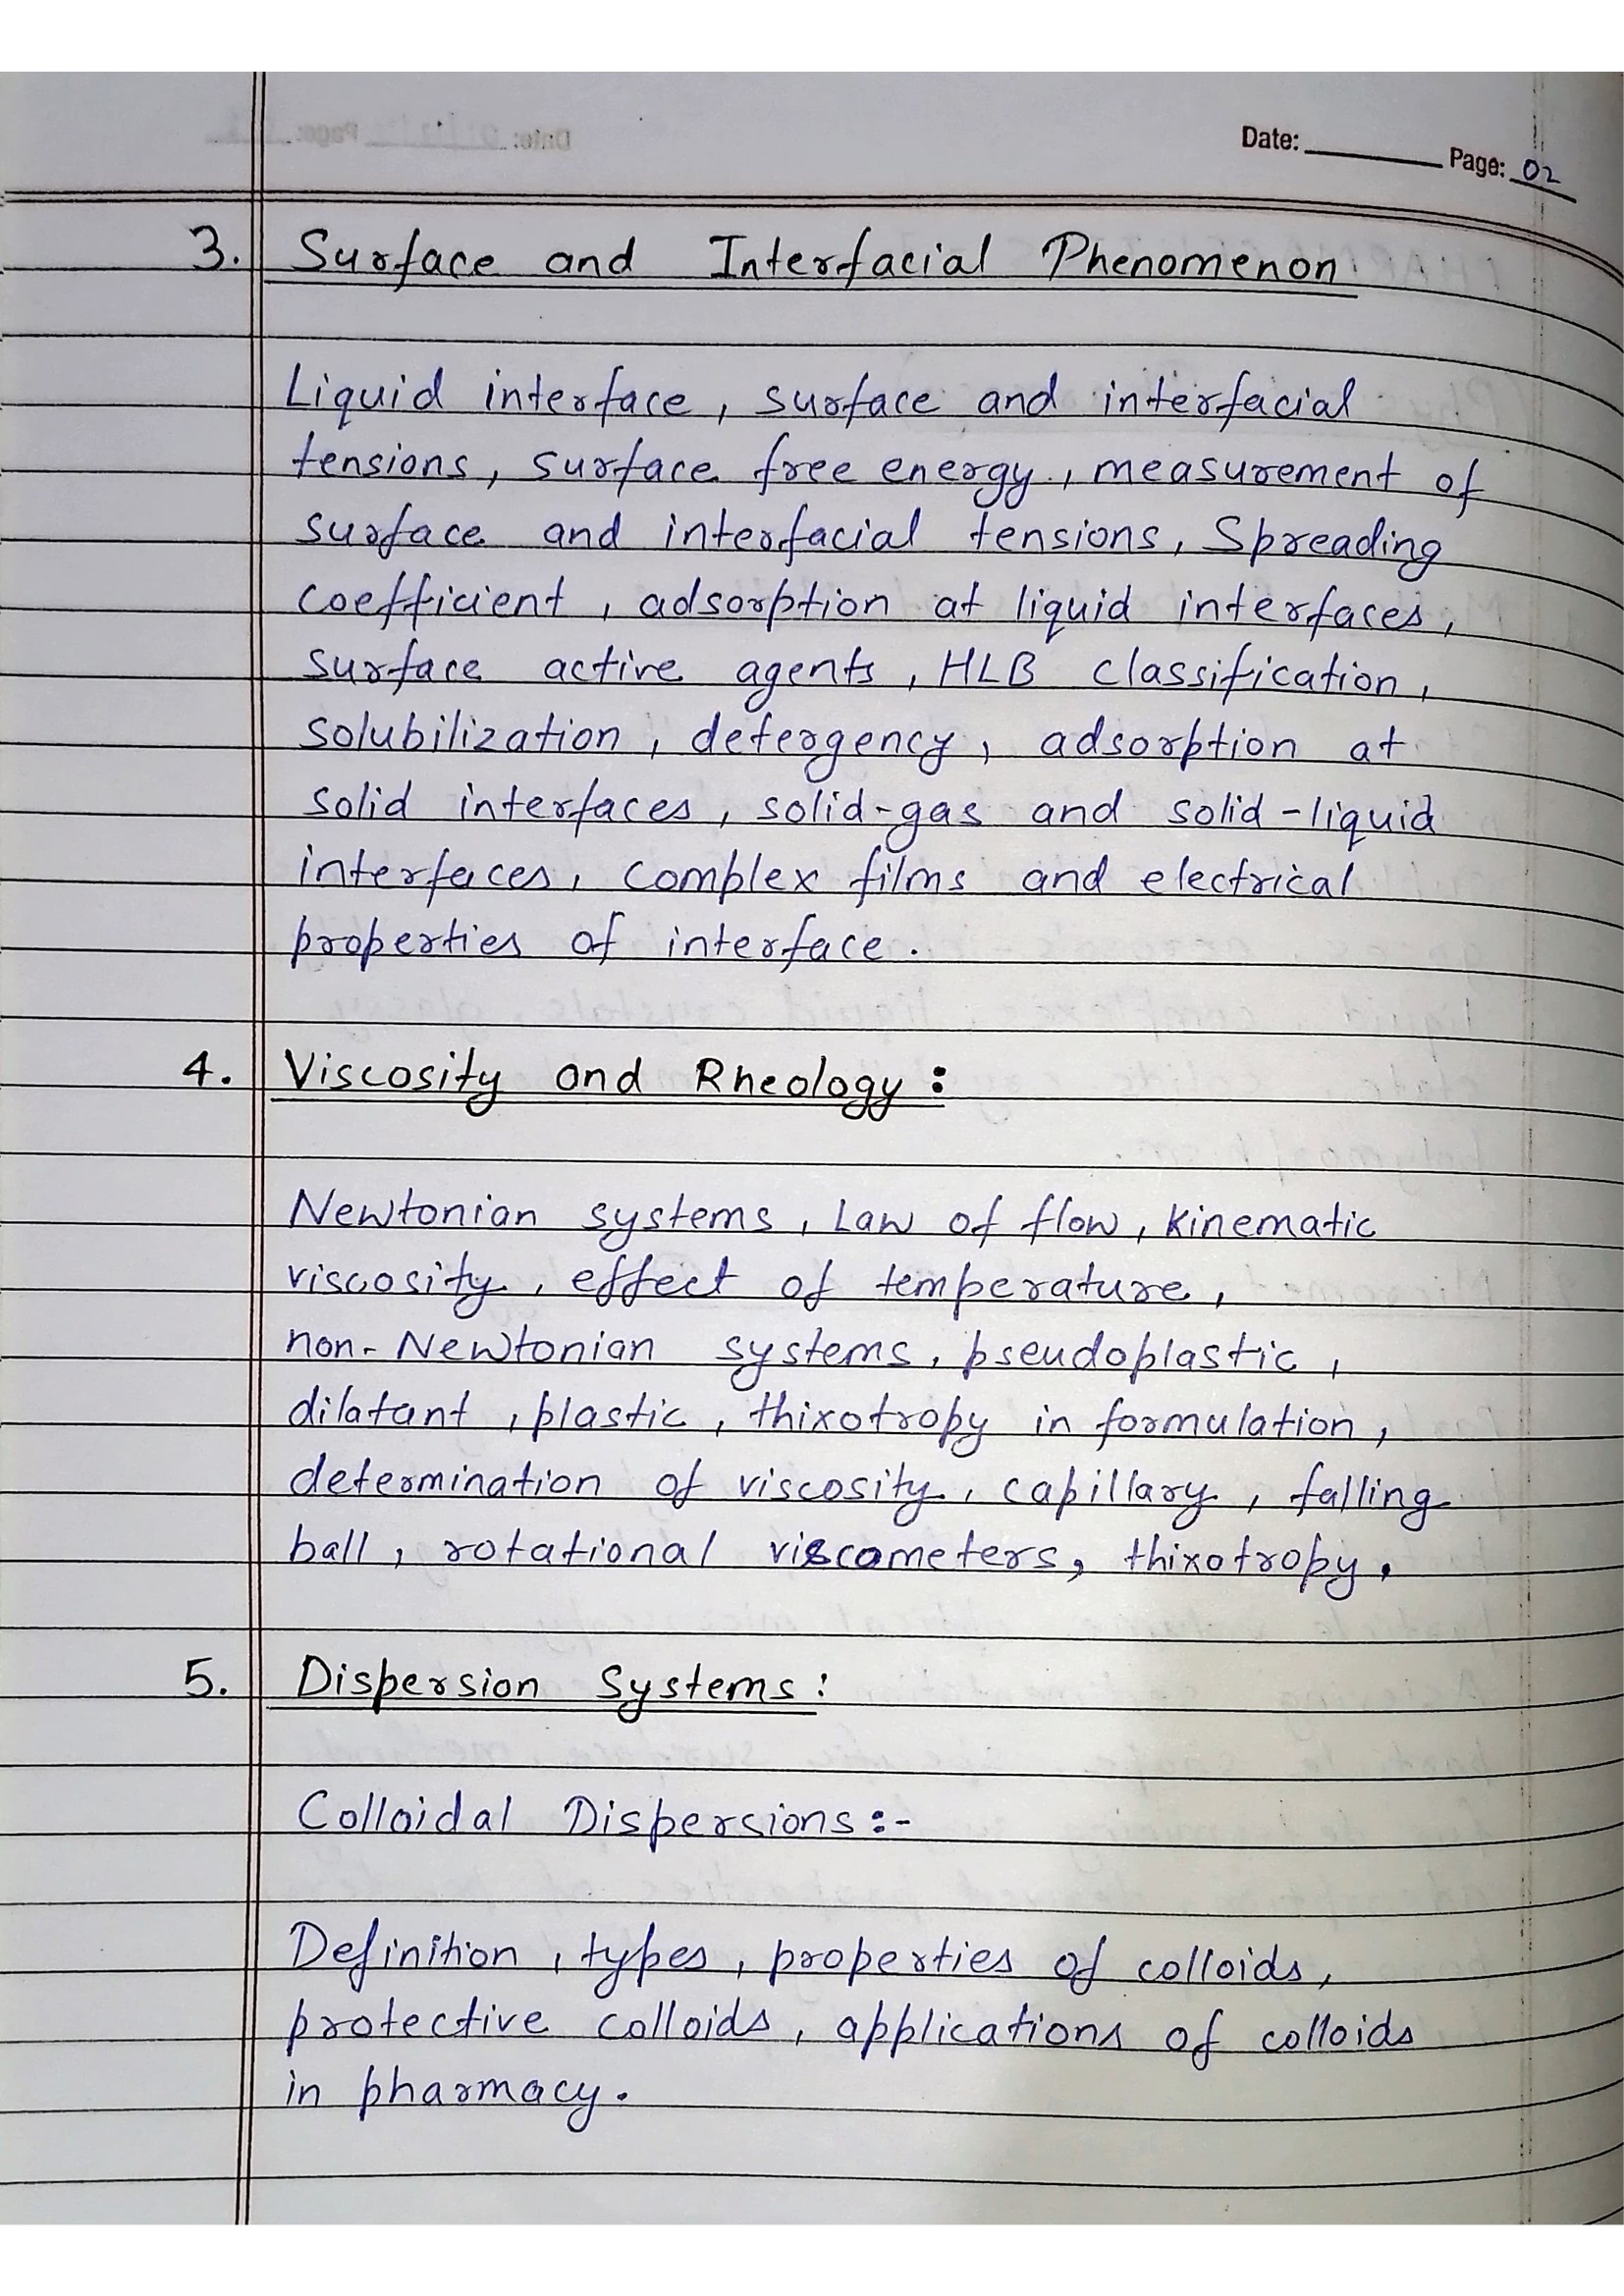 Date: Page: 02
3. Surface and Interfacial Phenomenon
Liquid interface, surface and interfacial
tensions, surface free energy, measurement of
surface and interfacial tensions, Spreading
coefficient, adsorption at liquid interfaces,
surface active agents, HLB classification,
solubilization, detergency, adsorption at
solid interfaces, solid-gas and solid-liquid
interfaces, complex films and electrical
properties of interface.
4. Viscosity and Rheology:
Newtonian systems, Law of flow, kinematic
viscosity, effect of temperature,
non-Newtonian systems, pseudoplastic,
dilatant, plastic, thixotropy in formulation,
determination of viscosity, capillary, falling
ball, rotational viscometers, thixotropy.
5. Dispersion Systems:
Colloidal Dispersions:-
Definition, types, properties of colloids,
protective colloids, applications of colloids
in pharmacy.